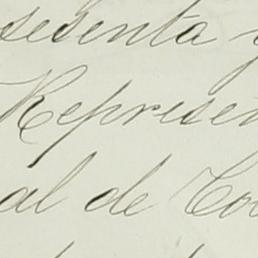 sesenta y
Represen
al de Co